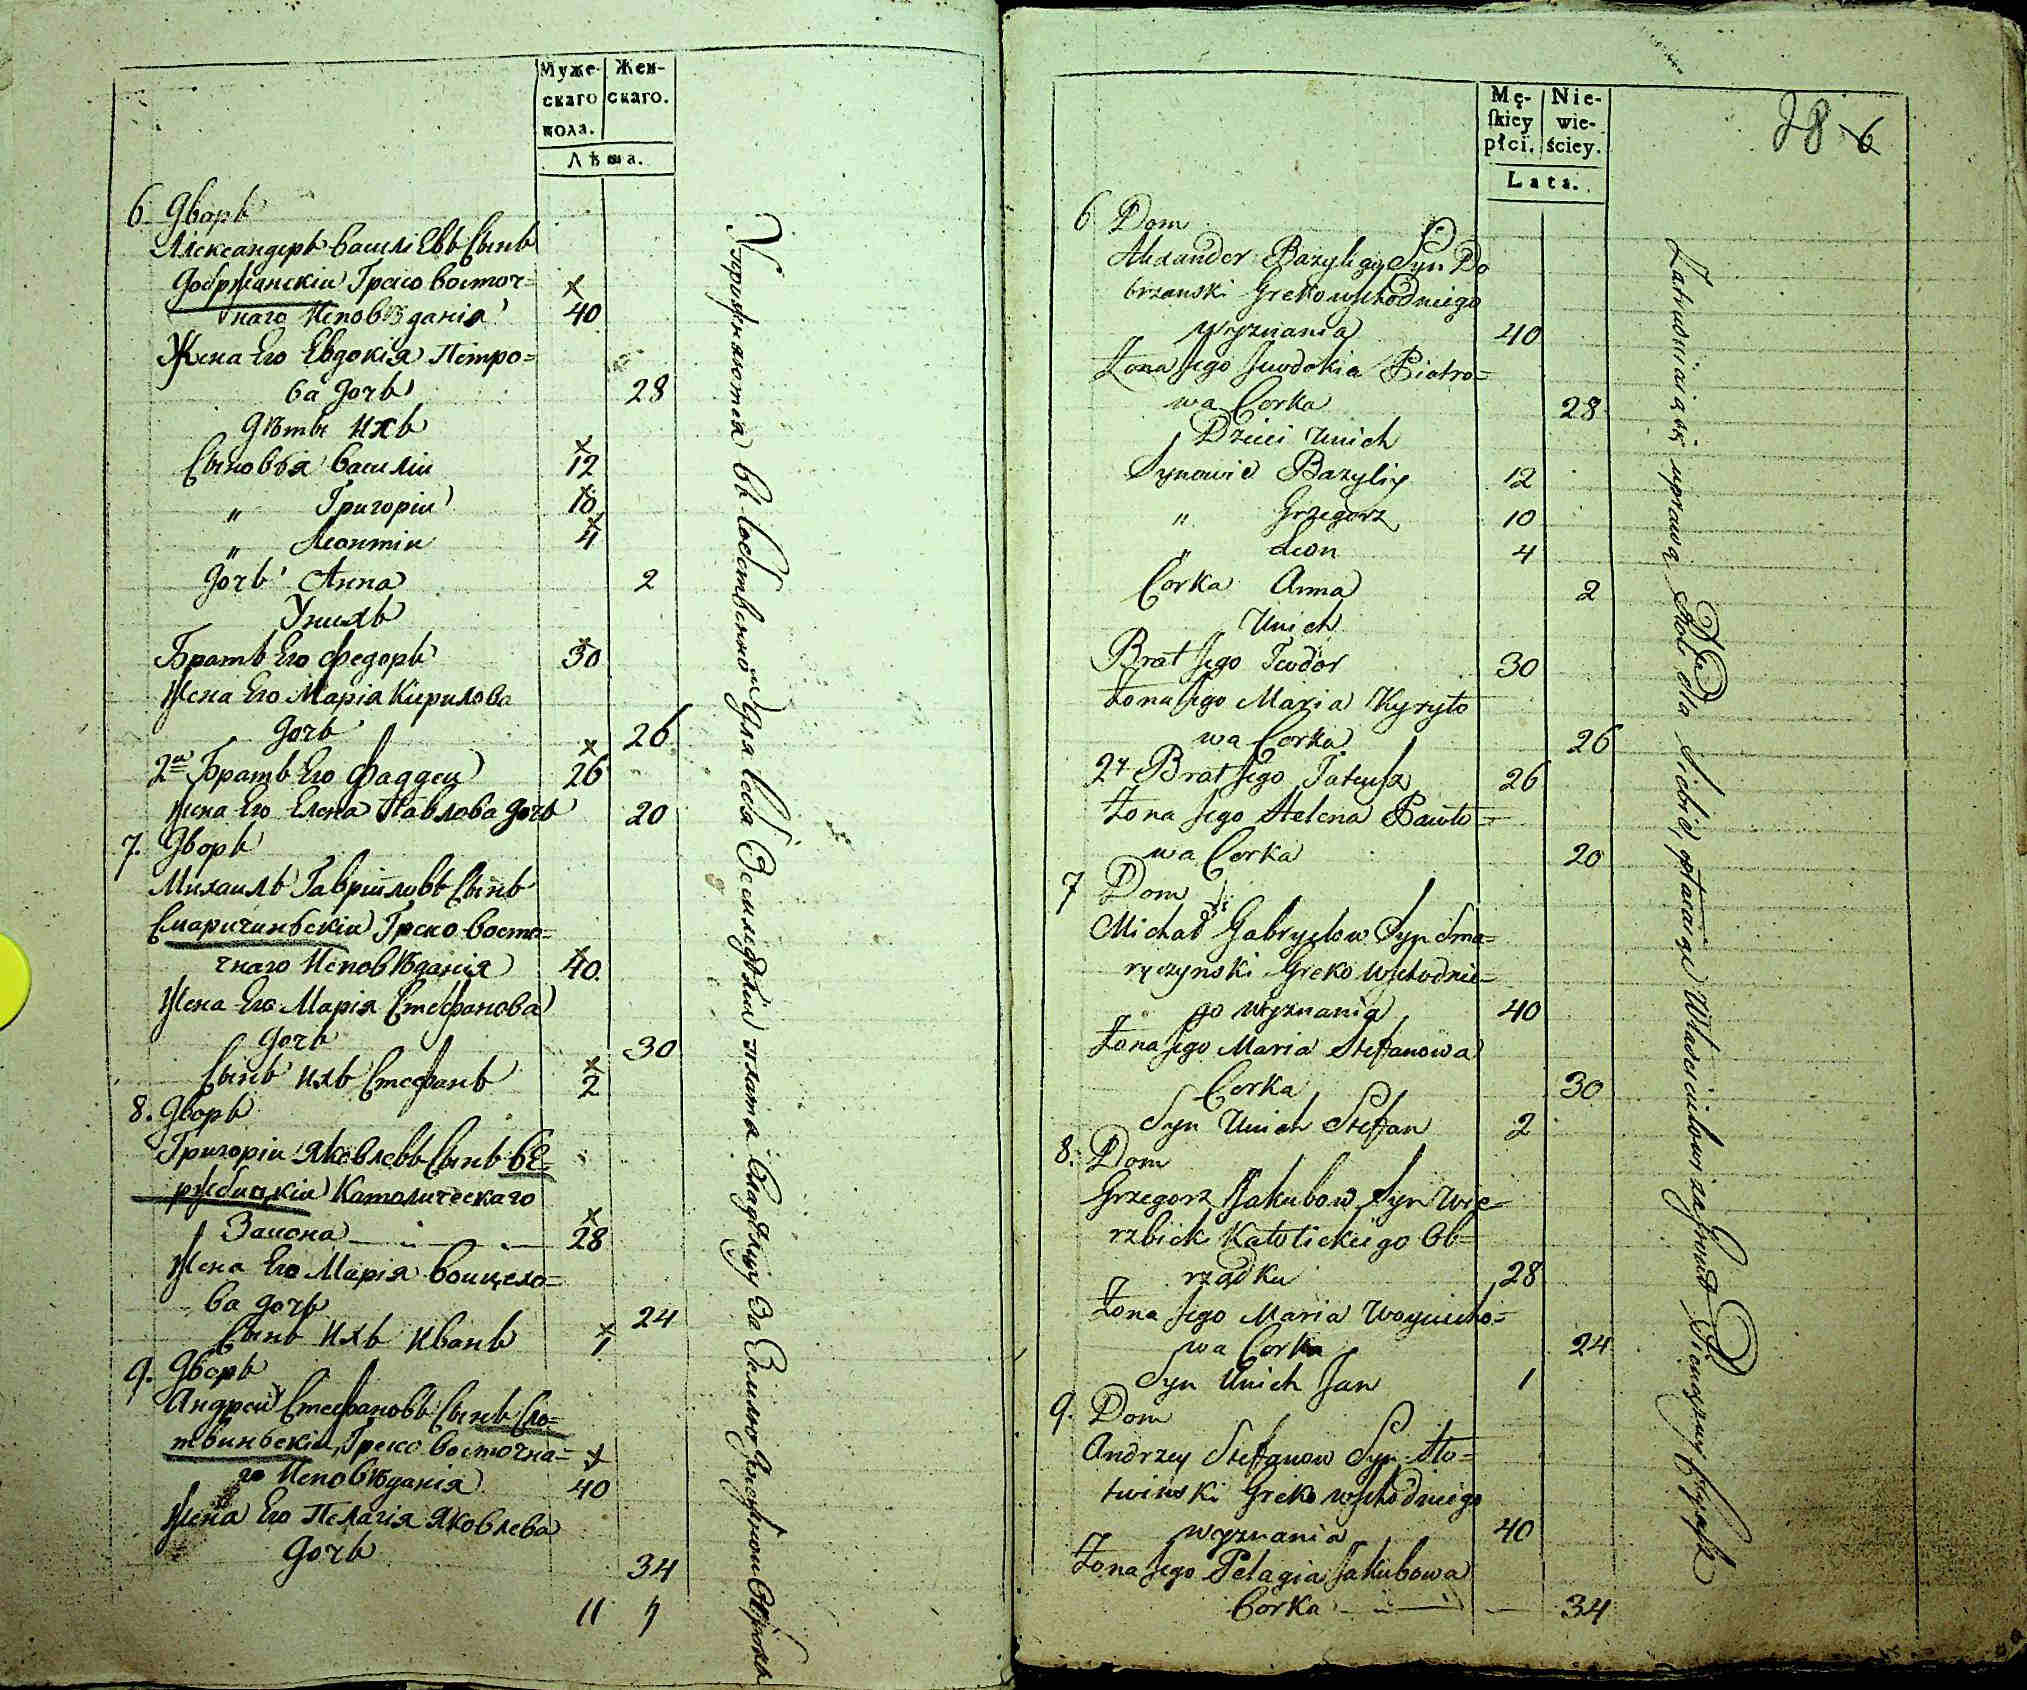 Муже-
скаго
пола.
Жен-
скаго.
Лѣта.
6 Дворъ
Александеръ Василіевъ Сынъ
Добржанскій Греко восточ=
наго Исповѣданія 40
Жена Его Евдокія Петро=
ва дочь 28
Дѣти ихъ
Сыновья Василій 12
„ Григорій 10
„ Леонтій 4
Дочь Анна 2
У нихъ
Братъ Его Федоръ 30
Жена Его Марія Кирилова
дочь 26
2й Братъ Его Фаддей 26
Жена Его Елена Павлова дочь 20
7. Дворъ
Михаилъ Гавріиловъ Сынъ
Смаричиньскій Греко-восто=
чнаго Исповѣданія 40
Жена Его Марія Стефанова
дочь 30
Сынъ ихъ Стефанъ 2
8. Дворъ
Григорій Яковлевъ Сынъ Ве=
ржбицкій Католическаго
Закона 28
Жена Его Марія Войцехо=
ва дочь 24
Сынъ ихъ Иванъ 1
9. Дворъ
Андрей Стефановъ Сынъ Сло=
твиньскій Греко восточна=
го Исповѣданія 40
Жена Его Пелагія Яковлева
дочь 34
11 7
Упражняются въ собственной для себя Земледѣліи плата Владѣльцу За Землю Чиншовой Оброкъ
Mę-
skiey
płci.
Nie-
wie-
ściey.
Lata.
28 6
6 Dom
Alexander Bazylego Syn Do
brzanski Greko wschodniego
wyznania 40
Żona Jego Jewdokia Piotro=
wa Corka 28
Dzieci Unich
Synowie Bazyliy 12
„ Grzegorz 10
„ Leon 4
Corka Anna 2
Unich
Brat Jego Teodor 30
Żona Jego Maria Kyryło
wa Corka 26
2y Brat Jego Tateusz 26
Żona Jego Helena Pawło=
wa Corka 20
7 Dom
Michał Gabryelow Syn Sma=
ryczynski Greko wschodnie=
go wyznania 40
Żona Jego Maria Steffanowa
Corka 30
Syn Unich Steffan 2
8. Dom
Grzegorz Jakubow Syn Wie=
rzbicki Katolickiego Ob=
rządku 28
Żona Jego Maria Woyciecho=
wa Corka 24
Syn Unich Jan 1
9. Dom
Andrzey Steffanow Syn Sło=
twinski Greko wschodniego
wyznania 40
Żona Jego Pelagia Jakubowa
Corka 34
Zatrudniaią się uprawą Roli dla Siebie, opłacaiąc Właścicielowi za Grunt Pieniężny Czynsz